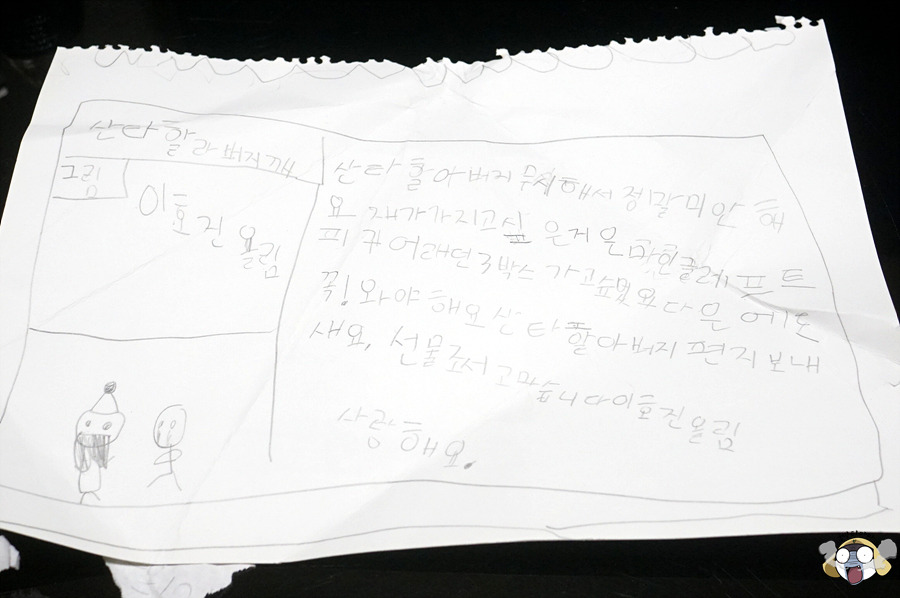 산타할라버지깨
그림
이효진 올림
산타 할아버지 무시해서 정말 미안 해
요 재가 가지고 싶은거은 마인클래프트
피규어래던 3박스 가고싶 요 다은 에도
꼭! 와야 해요 산타 할아버지 편지 보내
새요, 선물조서 고마습니다 이효진 올림
사랑해요.